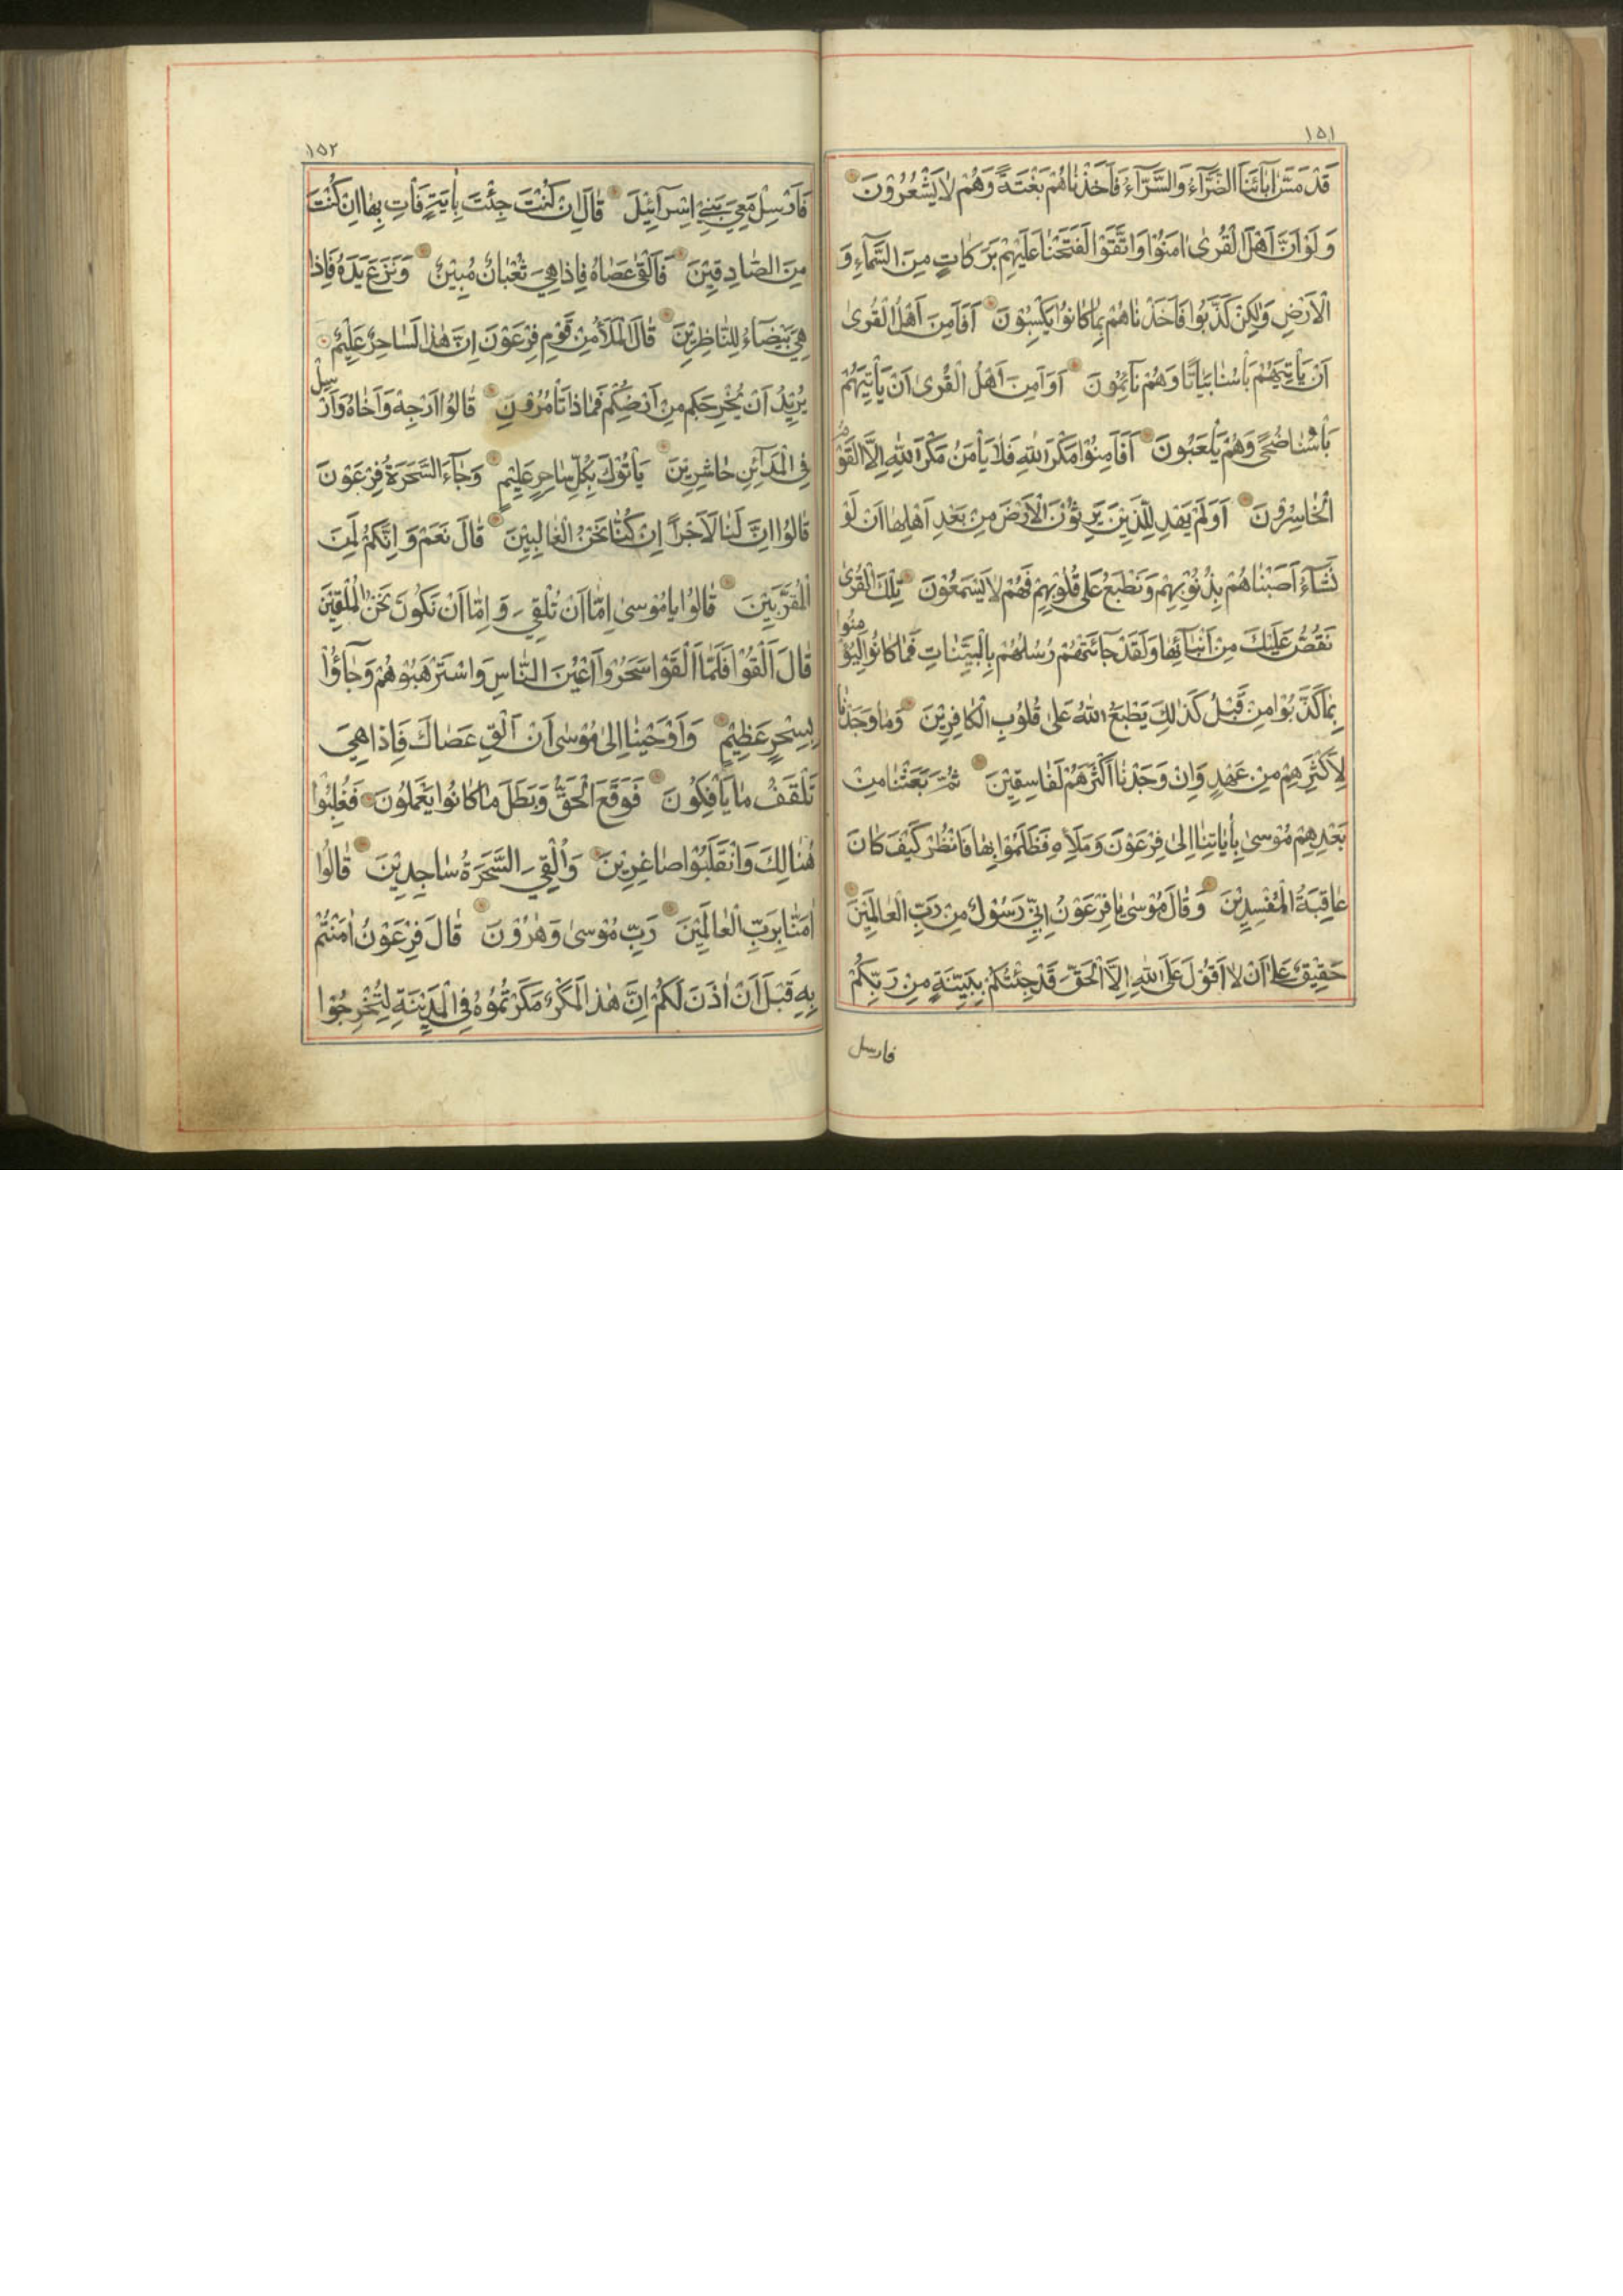 ١٥١
قَدْ مَسَّ اٰبَآئَنَا الضَّرَّآءُ وَالسَّرَّآءُ فَاَخَذْنَاهُمْ بَغْتَةً وَهُمْ لَا يَشْعُرُوْنَ
وَلَوْ اَنَّ اَهْلَ الْقُرىٰ اٰمَنُوْا وَاتَّقَوْا لَفَتَحْنَا عَلَيْهِمْ بَرَكَاتٍ مِنَ السَّمَآءِ وَ
الْاَرْضِ وَلٰكِنْ كَذَّبُوا فَاَخَذْنَاهُمْ بِمَا كَانُوْا يَكْسِبُوْنَ اَفَاَمِنَ اَهْلُ الْقُرىٰ
اَنْ يَأْتِيَهُمْ بَأْسُنَا بَيَاتًا وَهُمْ نَآئِمُوْنَ اَوَاَمِنَ اَهْلُ الْقُرىٰ اَنْ يَأْتِيَهُمْ
بَأْسُنَا ضُحًى وَهُمْ يَلْعَبُوْنَ اَفَاَمِنُوْا مَكْرَ اللهِ فَلَا يَأْمَنُ مَكْرَ اللهِ اِلَّا الْقَوْمُ
الْخَاسِرُوْنَ اَوَلَمْ يَهْدِ لِلَّذِيْنَ يَرِثُوْنَ الْاَرْضَ مِنْ بَعْدِ اَهْلِهَا اَنْ لَوْ
نَشَآءُ اَصَبْنَاهُمْ بِذُنُوْبِهِمْ وَنَطْبَعُ عَلىٰ قُلُوْبِهِمْ فَهُمْ لَا يَسْمَعُوْنَ تِلْكَ الْقُرىٰ
نَقُصُّ عَلَيْكَ مِنْ اَنْبَآئِهَا وَلَقَدْ جَآئَتْهُمْ رُسُلُهُمْ بِالْبَيِّنَاتِ فَمَا كَانُوْا لِيُؤْمِنُوا
بِمَا كَذَّبُوْا مِنْ قَبْلُ كَذٰلِكَ يَطْبَعُ اللهُ عَلىٰ قُلُوْبِ الْكَافِرِيْنَ وَمَا وَجَدْنَا
لِاَكْثَرِهِمْ مِنْ عَهْدٍ وَاِنْ وَجَدْنَا اَكْثَرَهُمْ لَفَاسِقِيْنَ ثُمَّ بَعَثْنَا مِنْ
بَعْدِهِمْ مُوْسىٰ بِاٰيَاتِنَا اِلىٰ فِرْعَوْنَ وَمَلَأِهٖ فَظَلَمُوْا بِهَا فَانْظُرْ كَيْفَ كَانَ
عَاقِبَةُ الْمُفْسِدِيْنَ وَقَالَ مُوْسىٰ يَا فِرْعَوْنُ اِنِّيْ رَسُوْلٌ مِنْ رَبِّ الْعَالَمِيْنَ
حَقِيْقٌ عَلىٰ اَنْ لَا اَقُوْلَ عَلَى اللهِ اِلَّا الْحَقَّ قَدْ جِئْتُكُمْ بِبَيِّنَةٍ مِنْ رَبِّكُمْ
فارسل
١٥٢
فَاَرْسِلْ مَعِيَ بَنِيْ اِسْرَآئِيْلَ قَالَ اِنْ كُنْتَ جِئْتَ بِاٰيَةٍ فَأْتِ بِهَا اِنْ كُنْتَ
مِنَ الصَّادِقِيْنَ فَاَلْقىٰ عَصَاهُ فَاِذَا هِيَ ثُعْبَانٌ مُبِيْنٌ وَنَزَعَ يَدَهُ فَاِذَا
هِيَ بَيْضَآءُ لِلنَّاظِرِيْنَ قَالَ الْمَلَأُ مِنْ قَوْمِ فِرْعَوْنَ اِنَّ هٰذَا لَسَاحِرٌ عَلِيْمٌ
يُرِيْدُ اَنْ يُخْرِجَكُمْ مِنْ اَرْضِكُمْ فَمَاذَا تَأْمُرُوْنَ قَالُوْا اَرْجِهْ وَاَخَاهُ وَاَرْسِلْ
فِي الْمَدَآئِنِ حَاشِرِيْنَ يَأْتُوْكَ بِكُلِّ سَاحِرٍ عَلِيْمٍ وَجَآءَ السَّحَرَةُ فِرْعَوْنَ
قَالُوْا اِنَّ لَنَا لَاَجْرًا اِنْ كُنَّا نَحْنُ الْغَالِبِيْنَ قَالَ نَعَمْ وَاِنَّكُمْ لَمِنَ
الْمُقَرَّبِيْنَ قَالُوْا يَا مُوْسىٰ اِمَّا اَنْ تُلْقِيَ وَاِمَّا اَنْ نَكُوْنَ نَحْنُ الْمُلْقِيْنَ
قَالَ اَلْقُوْا فَلَمَّا اَلْقَوْا سَحَرُوْا اَعْيُنَ النَّاسِ وَاسْتَرْهَبُوْهُمْ وَجَآؤُا
بِسِحْرٍ عَظِيْمٍ وَاَوْحَيْنَا اِلىٰ مُوْسىٰ اَنْ اَلْقِ عَصَاكَ فَاِذَا هِيَ
تَلْقَفُ مَا يَأْفِكُوْنَ فَوَقَعَ الْحَقُّ وَبَطَلَ مَا كَانُوْا يَعْمَلُوْنَ فَغُلِبُوْا
هُنَالِكَ وَانْقَلَبُوْا صَاغِرِيْنَ وَاُلْقِيَ السَّحَرَةُ سَاجِدِيْنَ قَالُوْا
اٰمَنَّا بِرَبِّ الْعَالَمِيْنَ رَبِّ مُوْسىٰ وَهٰرُوْنَ قَالَ فِرْعَوْنُ اٰمَنْتُمْ
بِهٖ قَبْلَ اَنْ اٰذَنَ لَكُمْ اِنَّ هٰذَا لَمَكْرٌ مَكَرْتُمُوْهُ فِي الْمَدِيْنَةِ لِتُخْرِجُوْا